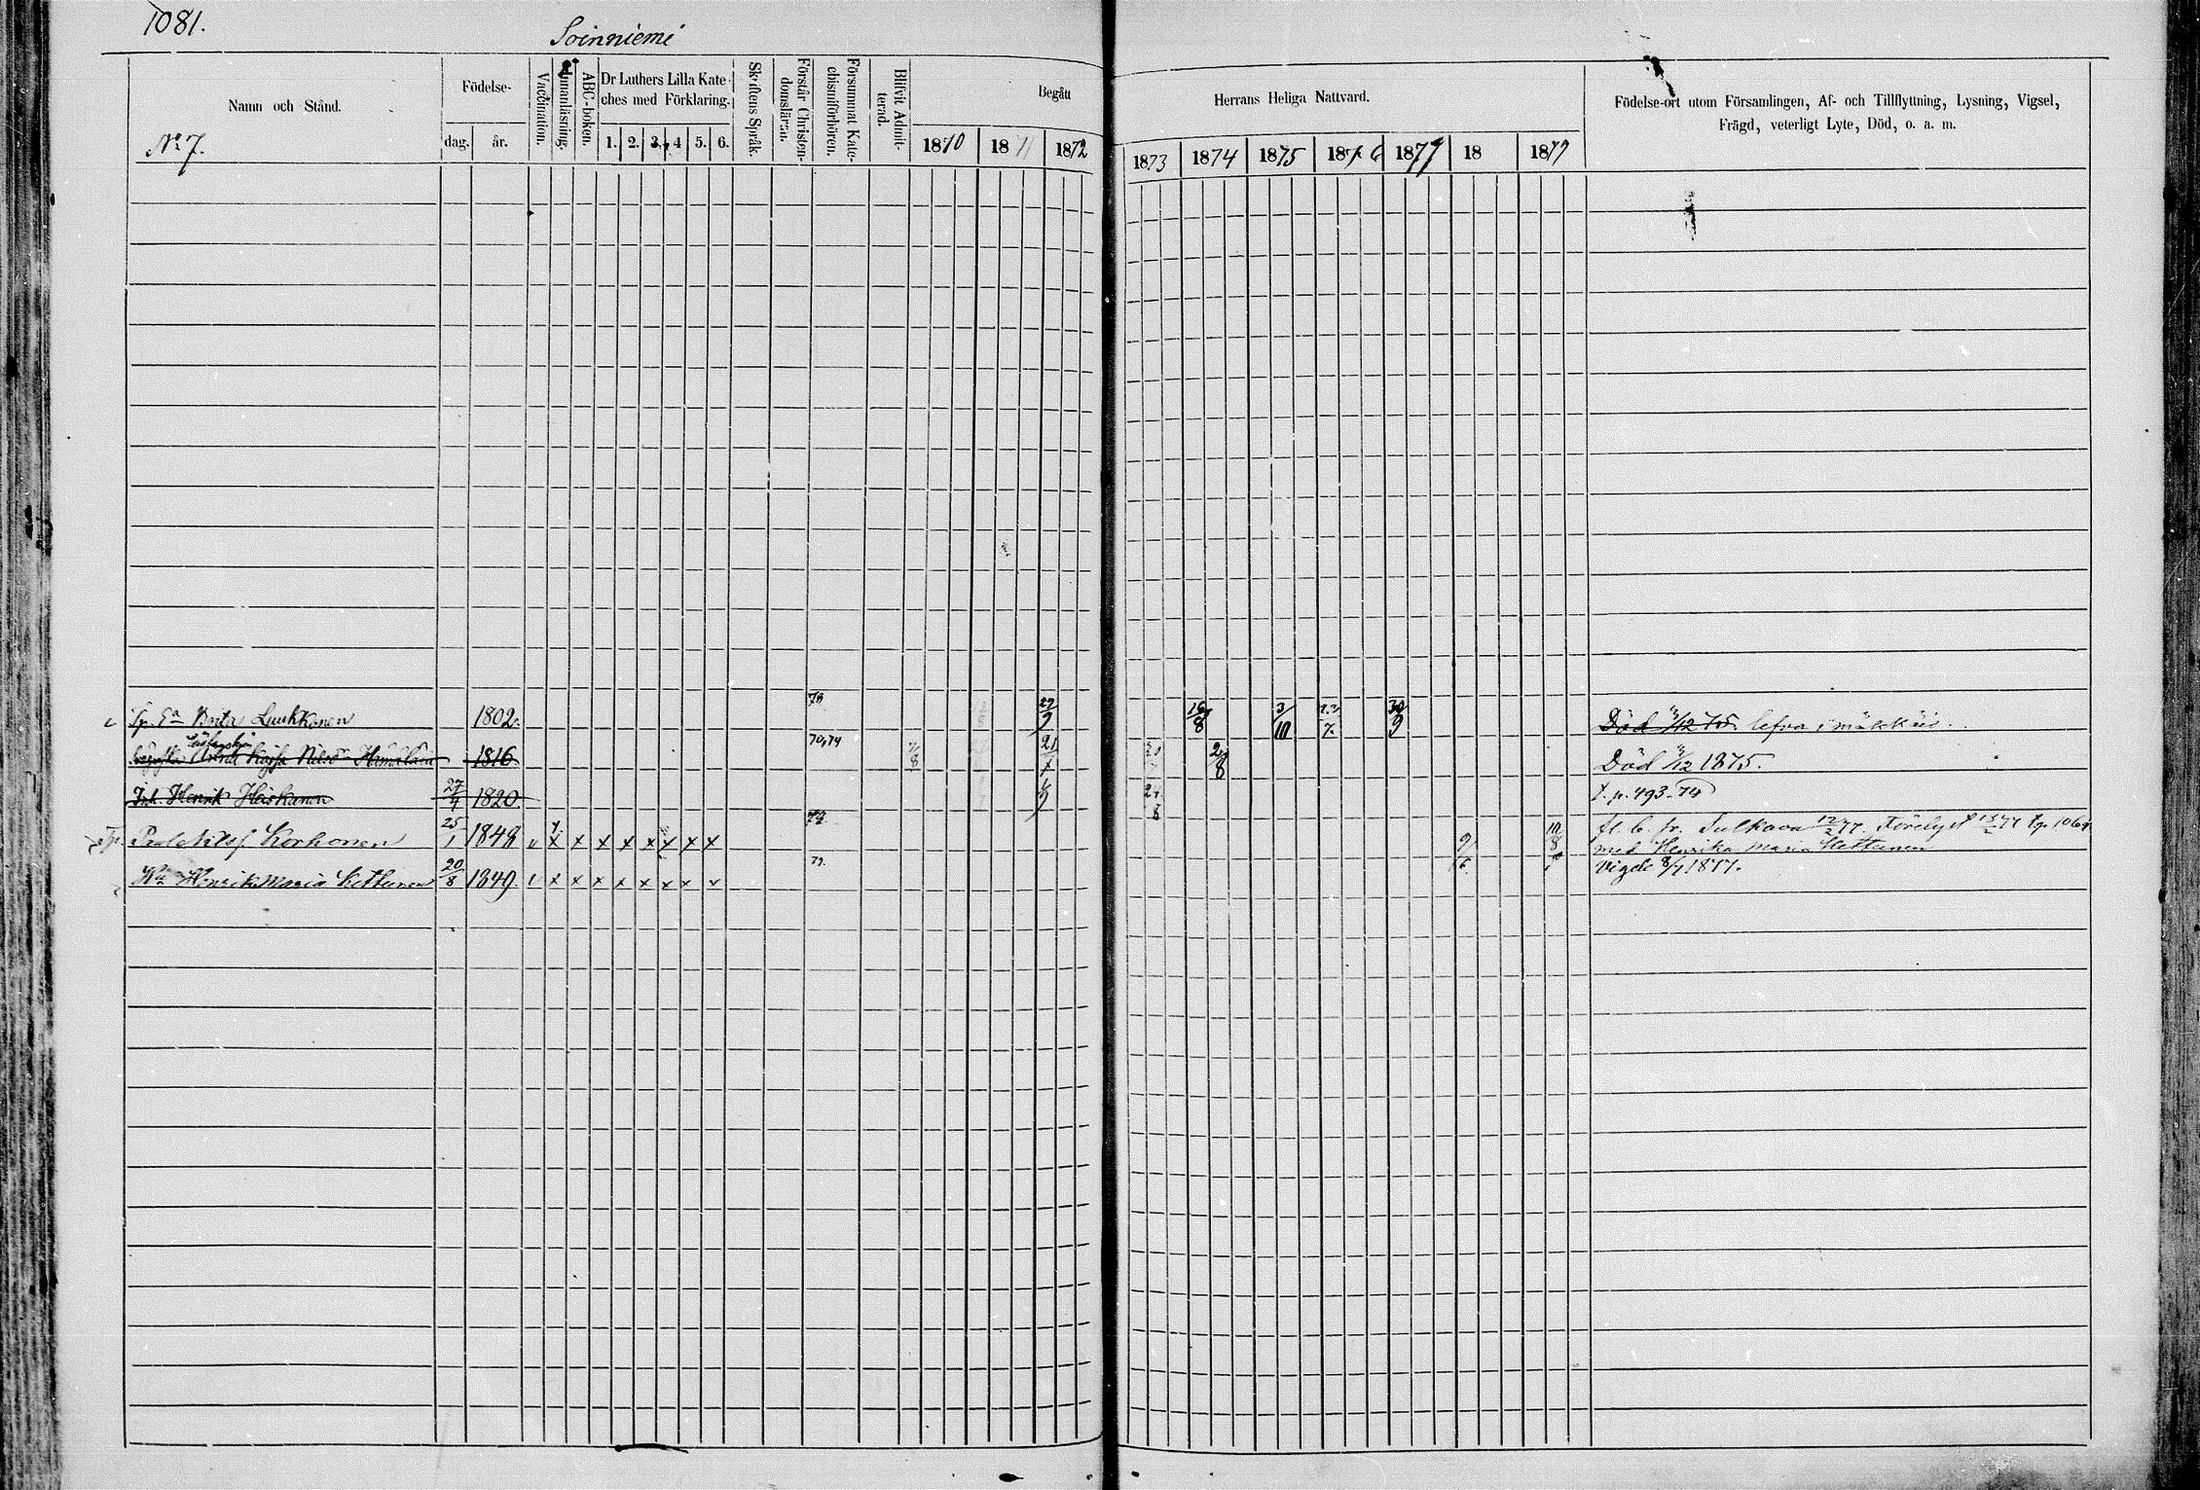 1081.
Soinniemi
Namn och Stånd.
Födelse-
dag. år.
Vaccination.
Innanläsning.
ABC-boken.
Dr Luthers Lilla Kate-
ches med Förklaring.
1. 2. 3. 4 5. 6.
Skriftens Språk.
Förstår Christen-
domsläran.
Försummat Kate-
chismiförhören.
Blifvit Admit-
terad.
Begått
Herrans Heliga Nattvard.
1870 1871 1872 1873 1874 1875 1876 1877 18 1879
Födelse-ort utom Församlingen, Af- och Tillflyttning, Lysning, Vigsel,
Frägd, veterligt Lyte, Död, o. a. m.
No 7.
Brita Luukkonen 1802. 16/8 3/10 30/9 Död 4/12 75 lefva i mäkkiis.
Kajsa Nilsd Hämäläin 1816 70,74 21 2/8 Död 4/12 1875.
Inh. Henrik Heiskanen 27/4 1820 t. p. 493-74
Korhonen 25/1 1848 v x x x x x x x x 10/8 fl. b. fr. Sulkava 12/2 77, 1069
med Henrika Maria Kettunen
Henrika Maria Kettunen 20/8 1849. x x x x x x x x Vigde 8/7 1877.